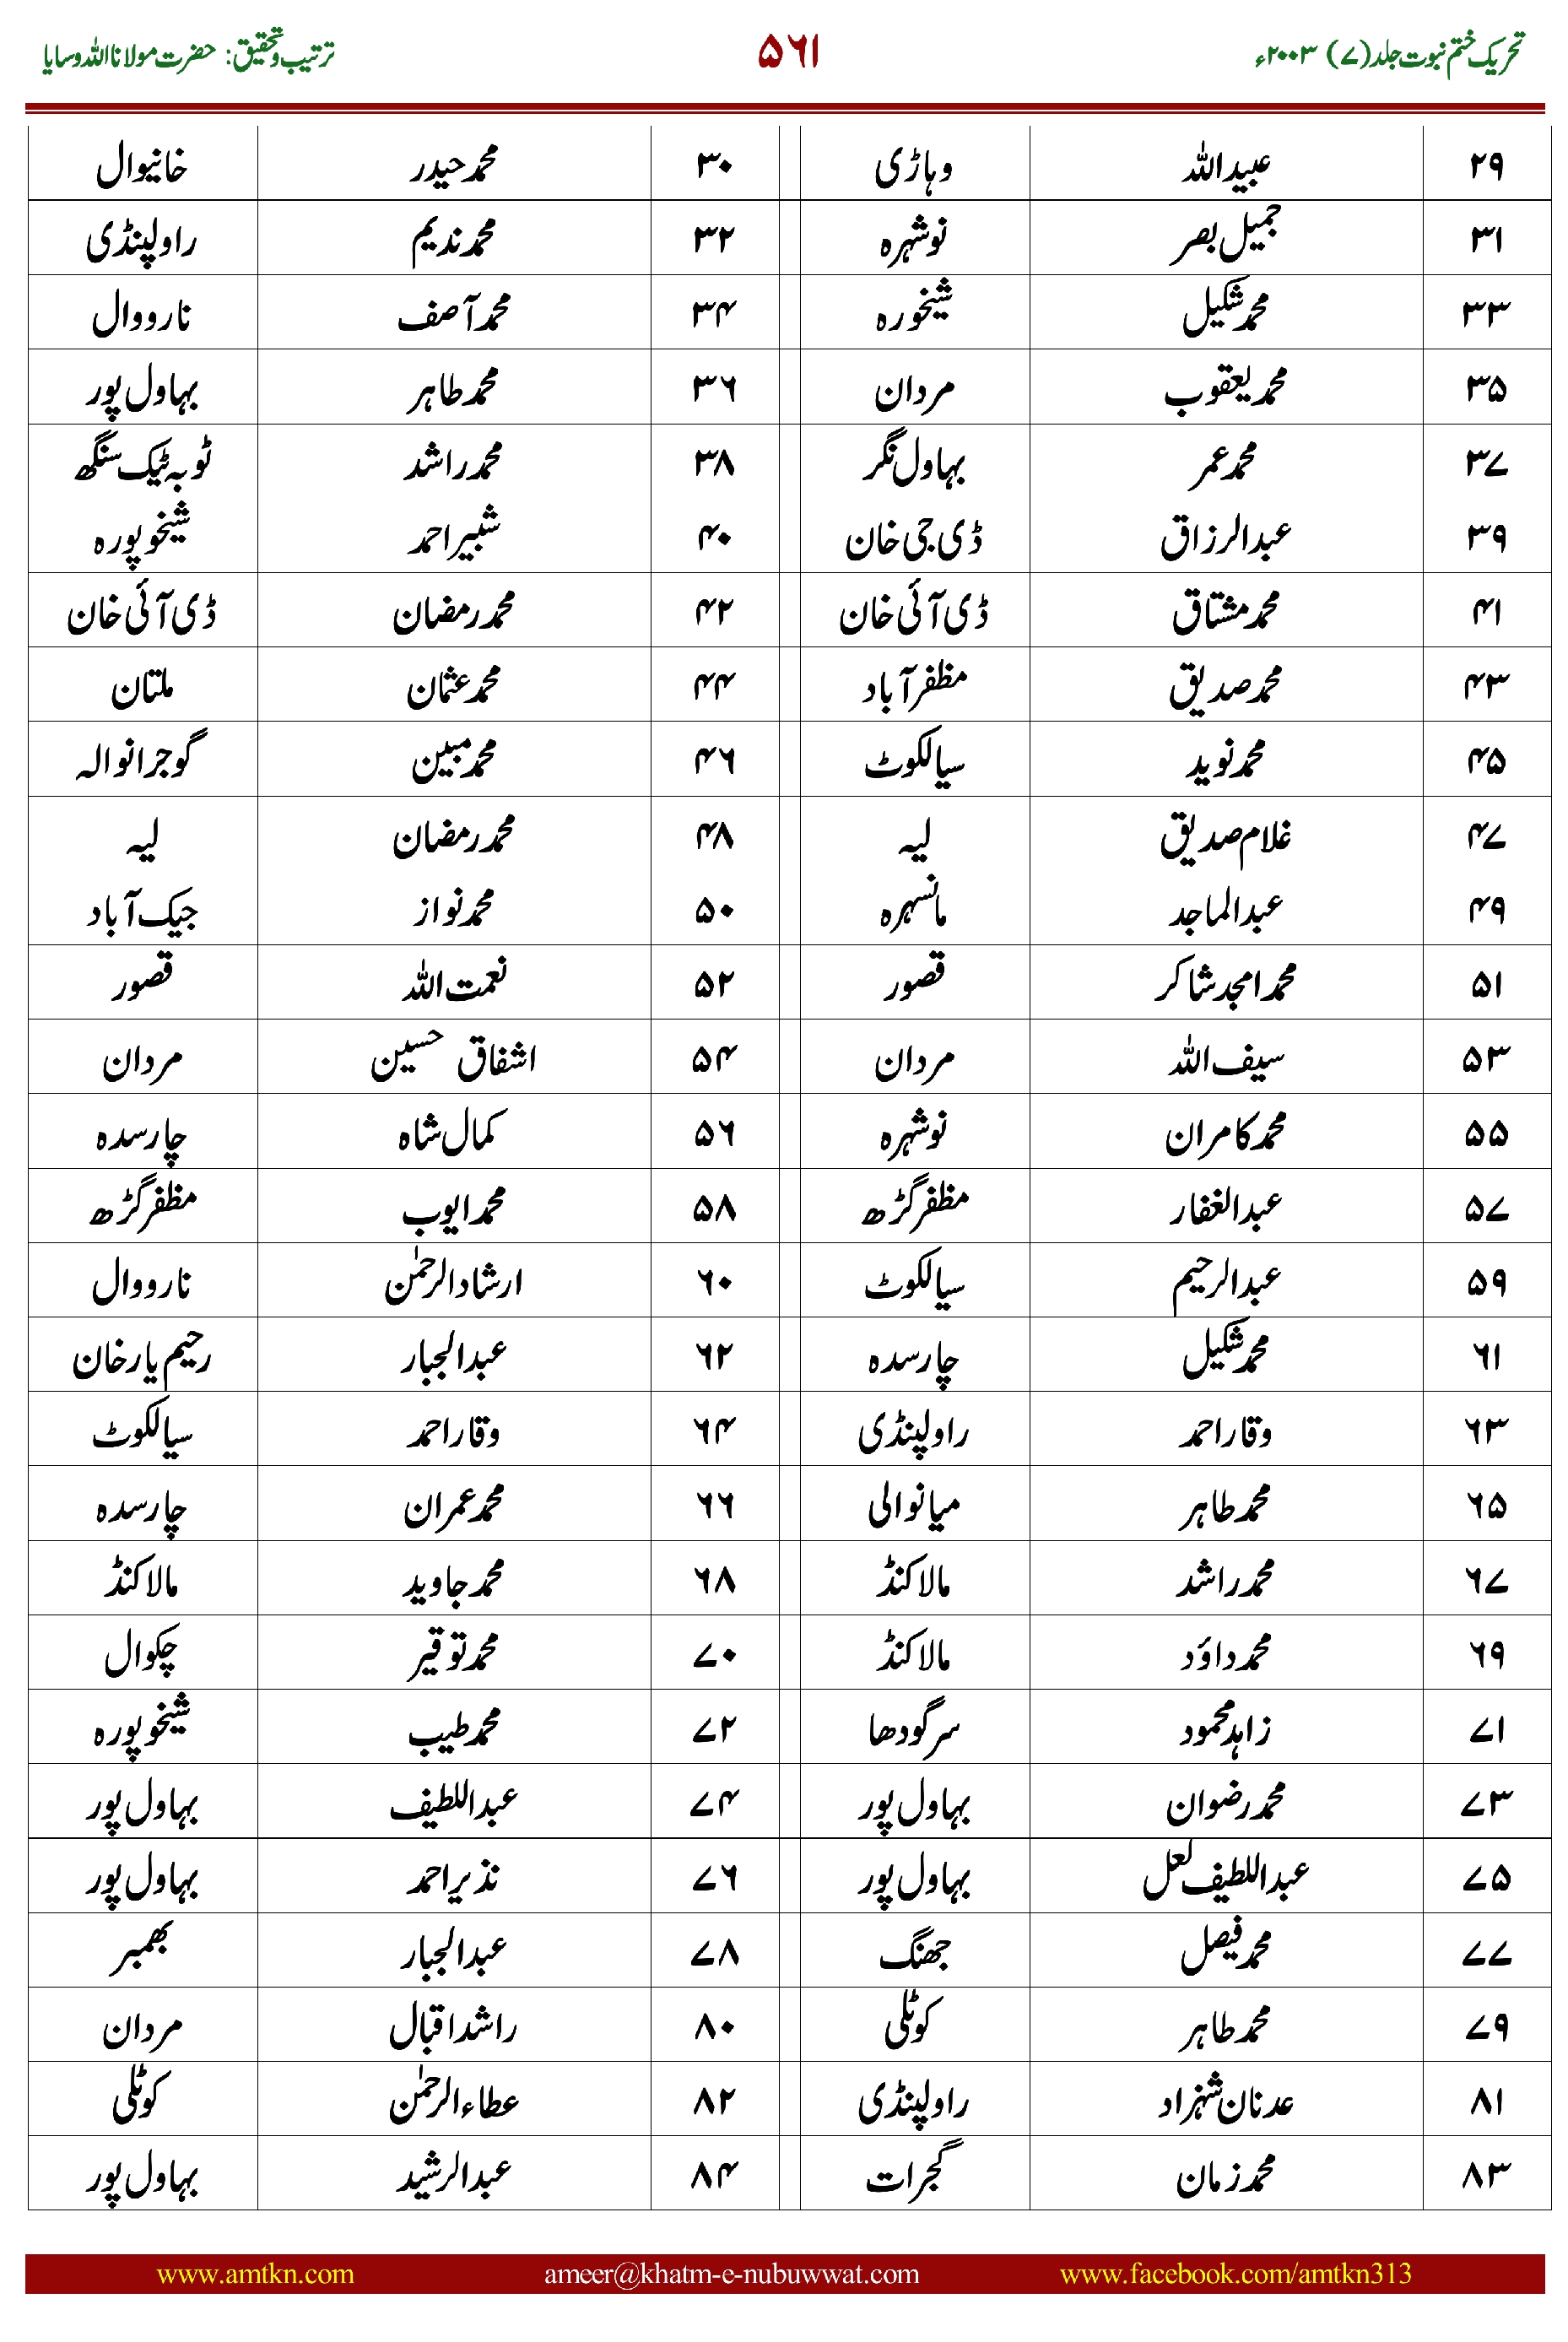 تحریک ختم نبوت جلد (۷) ۲۰۰۳ء ۵۶۱ ترتیب و تحقیق: حضرت مولانا اللہ وسایا
۲۹ عبید اللہ وہاڑی ۳۰ محمد حیدر خانیوال
۳۱ جمیل بصر نوشہرہ ۳۲ محمد ندیم راولپنڈی
۳۳ محمد شکیل شیخورہ ۳۴ محمد آصف نارووال
۳۵ محمد یعقوب مردان ۳۶ محمد طاہر بہاول پور
۳۷ محمد عمر بہاول نگر ۳۸ محمد راشد ٹوبہ ٹیک سنگھ
۳۹ عبدالرزاق ڈی جی خان ۴۰ شبیر احمد شیخوپورہ
۴۱ محمد مشتاق ڈی آئی خان ۴۲ محمد رمضان ڈی آئی خان
۴۳ محمد صدیق مظفر آباد ۴۴ محمد عثمان ملتان
۴۵ محمد نوید سیالکوٹ ۴۶ محمد مبین گوجرانوالہ
۴۷ غلام صدیق لیہ ۴۸ محمد رمضان لیہ
۴۹ عبدالماجد مانسہرہ ۵۰ محمد نواز جیکب آباد
۵۱ محمد امجد شاکر قصور ۵۲ نعمت اللہ قصور
۵۳ سیف اللہ مردان ۵۴ اشفاق حسین مردان
۵۵ محمد کامران نوشہرہ ۵۶ کمال شاہ چارسدہ
۵۷ عبدالغفار مظفر گڑھ ۵۸ محمد ایوب مظفر گڑھ
۵۹ عبدالرحیم سیالکوٹ ۶۰ ارشاد الرحمٰن نارووال
۶۱ محمد شکیل چارسدہ ۶۲ عبدالجبار رحیم یار خان
۶۳ وقار احمد راولپنڈی ۶۴ وقار احمد سیالکوٹ
۶۵ محمد طاہر میانوالی ۶۶ محمد عمران چارسدہ
۶۷ محمد راشد مالاکنڈ ۶۸ محمد جاوید مالاکنڈ
۶۹ محمد داؤد مالاکنڈ ۷۰ محمد توقیر چکوال
۷۱ زاہد محمود سرگودھا ۷۲ محمد طیب شیخوپورہ
۷۳ محمد رضوان بہاول پور ۷۴ عبداللطیف بہاول پور
۷۵ عبداللطیف لعل بہاول پور ۷۶ نذیر احمد بہاول پور
۷۷ محمد فیصل جھنگ ۷۸ عبدالجبار بھمبر
۷۹ محمد طاہر کوٹلی ۸۰ راشد اقبال مردان
۸۱ عدنان شہزاد راولپنڈی ۸۲ عطاء الرحمٰن کوٹلی
۸۳ محمد زمان گجرات ۸۴ عبدالرشید بہاول پور
www.amtkn.com ameer@khatm-e-nubuwwat.com www.facebook.com/amtkn313